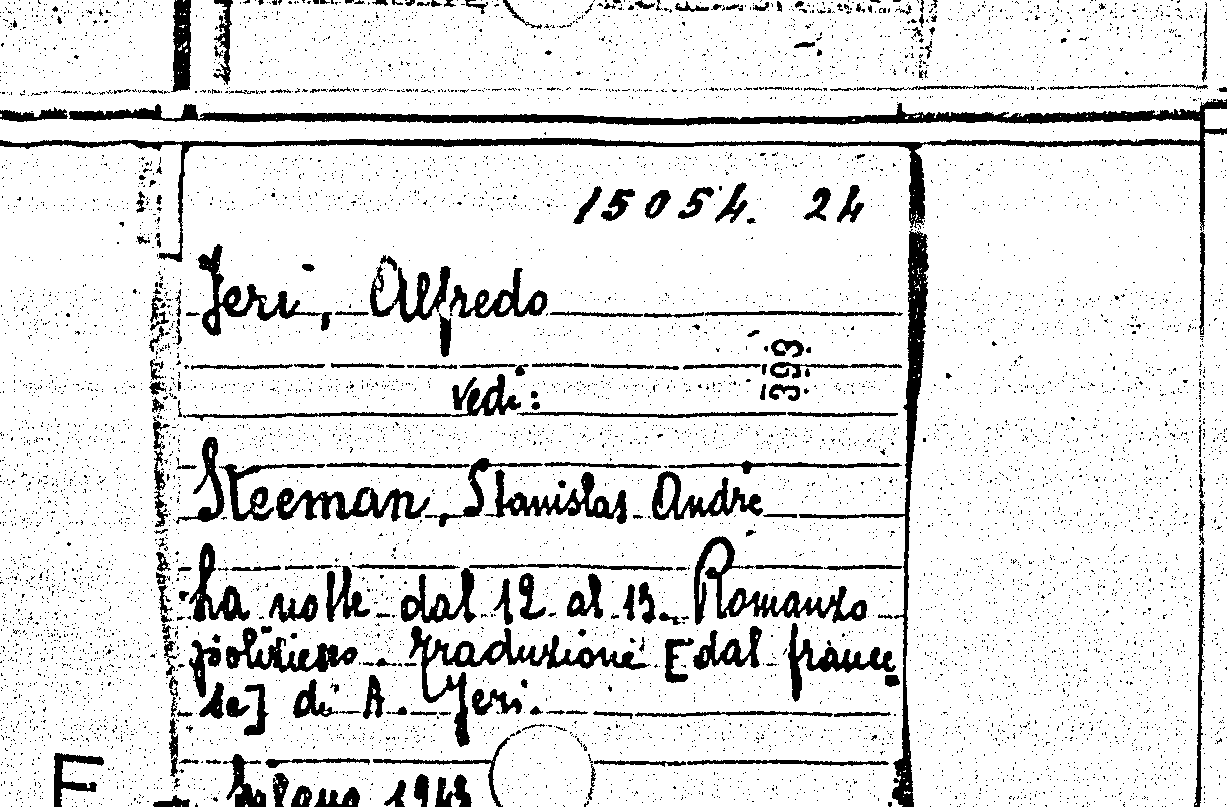 15054. 24
Jeri, Alfredo
393
vedi:
Steeman, Stanislas André
La notte dal 12 al 13. Romanzo
poliziesco. Traduzione [dal france
se] di A. Jeri.
Milano 1943
E